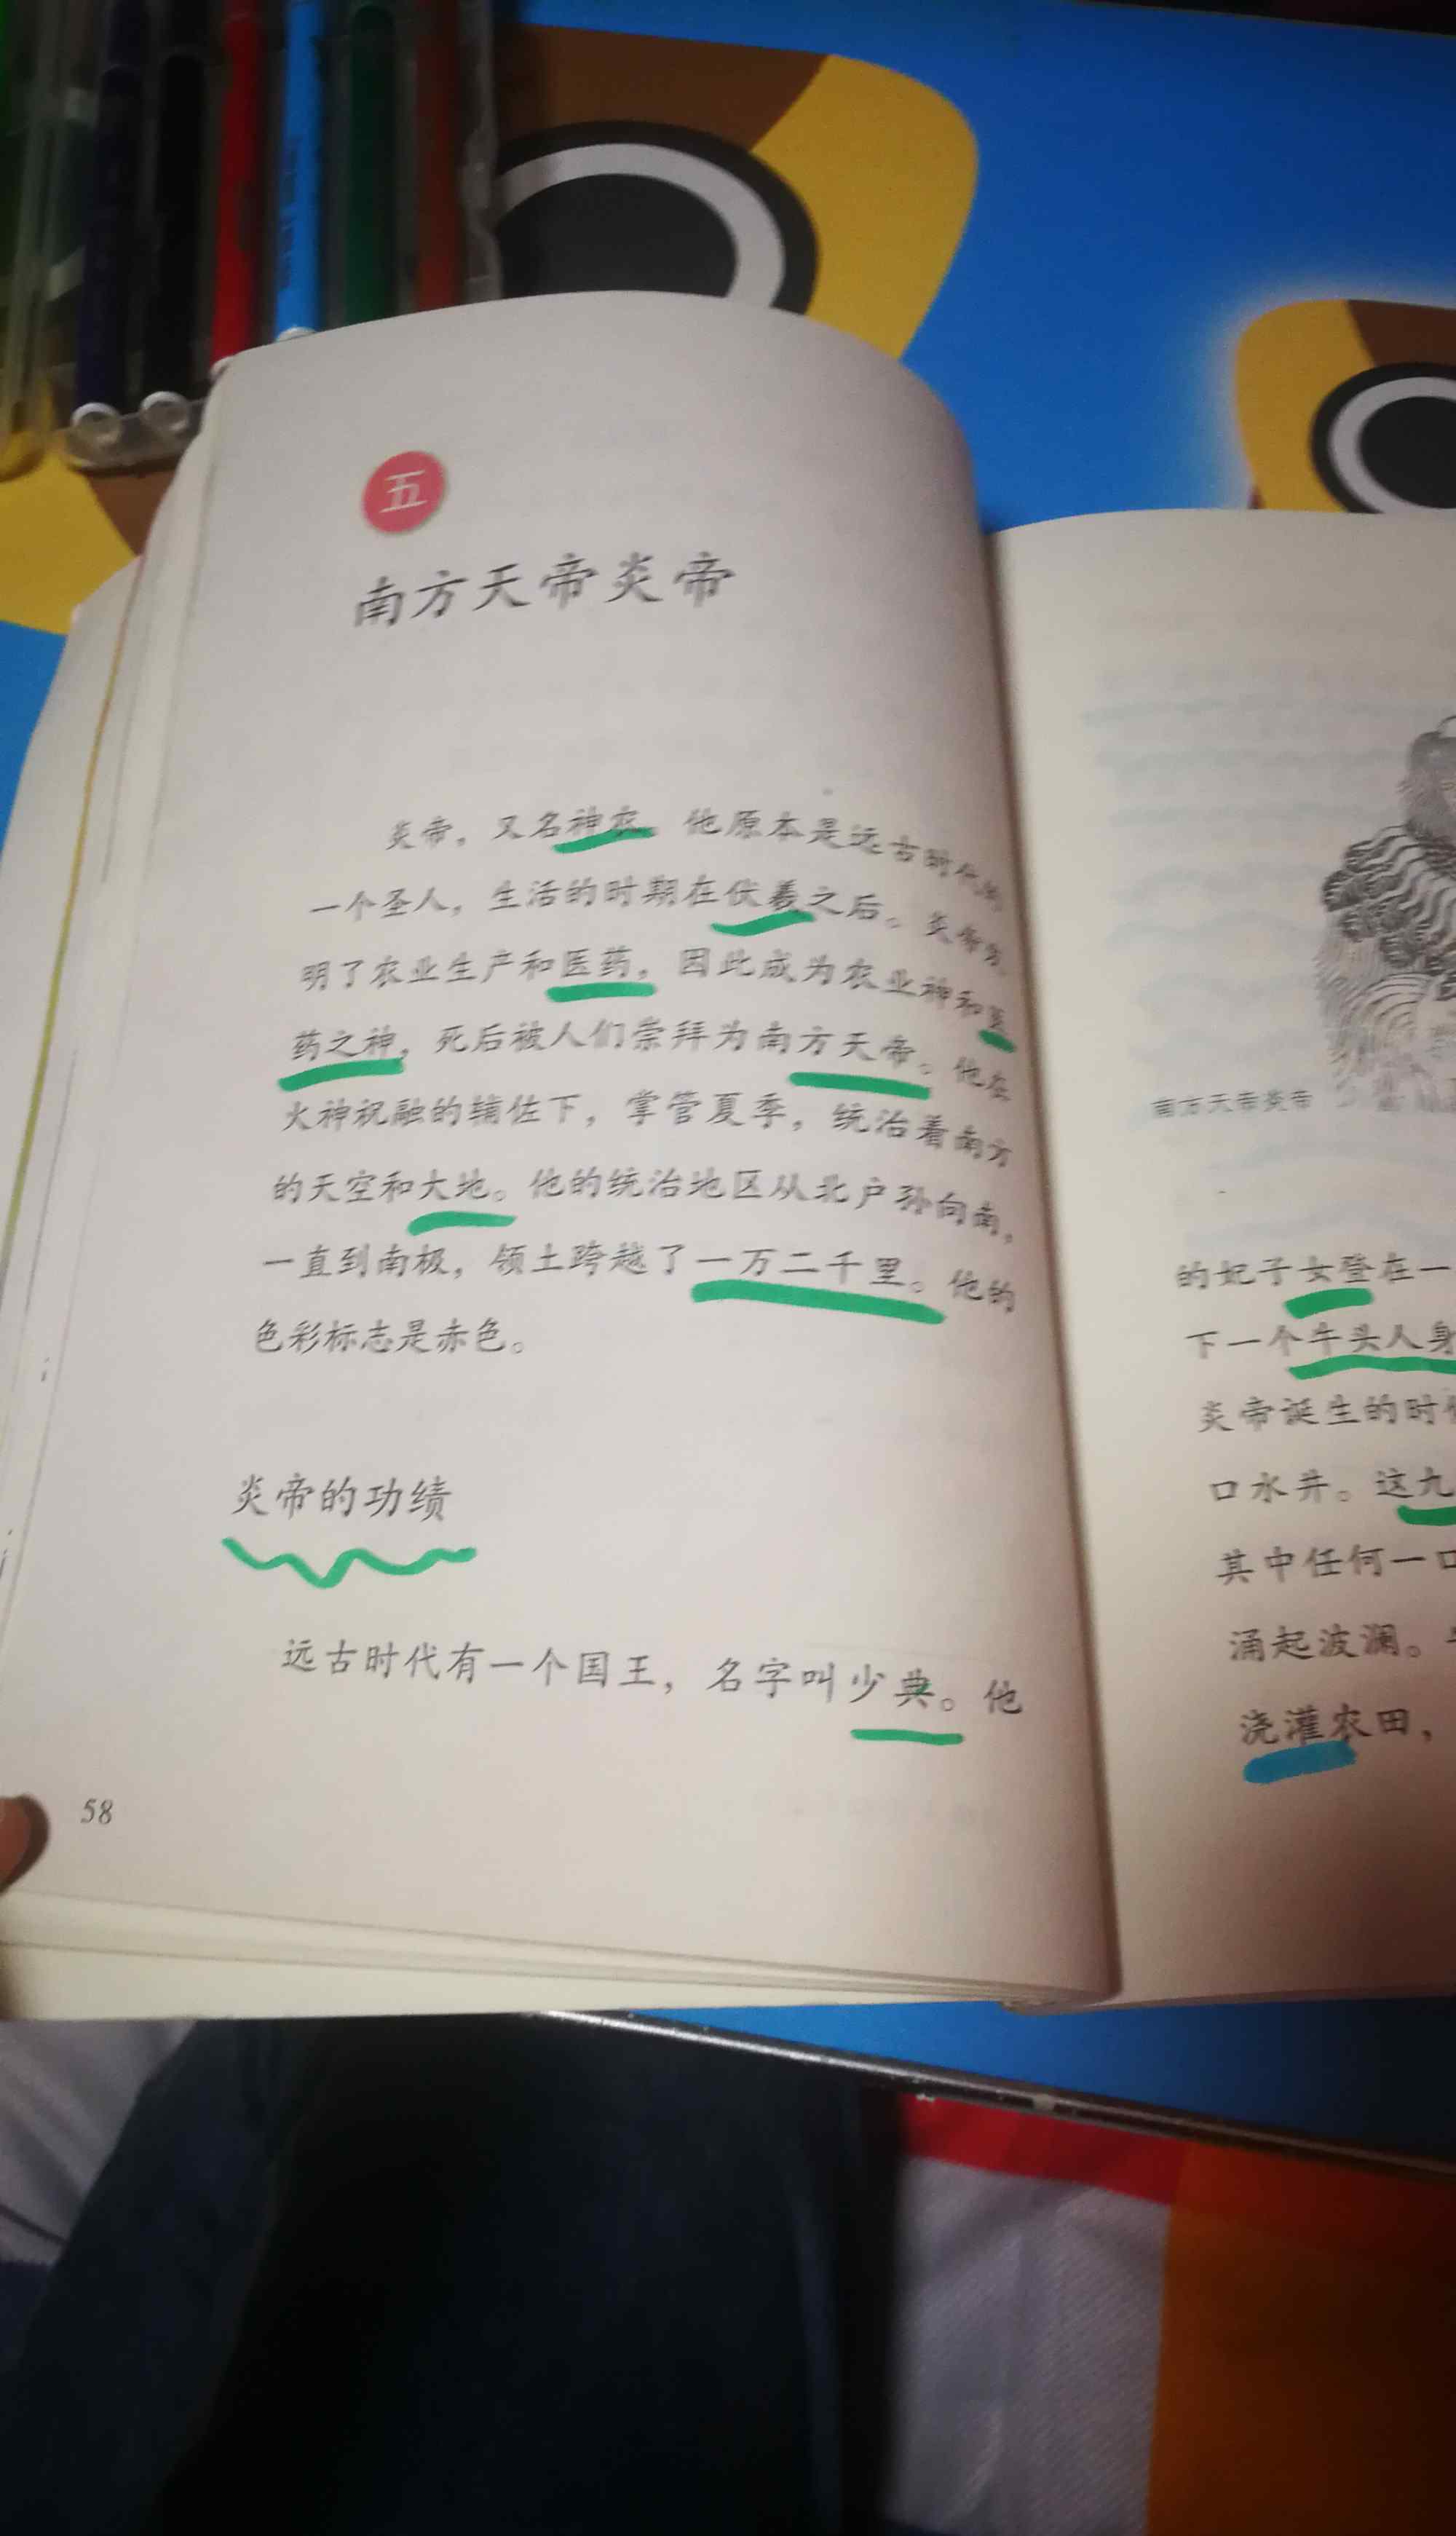 五
南方天帝炎帝
炎帝，又名神农。他原本是远古时代的
一个圣人，生活的时期在伏羲之后。炎帝发
明了农业生产和医药，因此成为农业神和医
药之神，死后被人们崇拜为南方天帝。他在
火神祝融的辅佐下，掌管夏季，统治着南方
的天空和大地。他的统治地区从北户孙向南，
一直到南极，领土跨越了一万二千里。他的
色彩标志是赤色。
炎帝的功绩
远古时代有一个国王，名字叫少典。他
58
南方天帝炎帝
的妃子女登在一
下一个牛头人身
炎帝诞生的时
口水井。这九
其中任何一口
涌起波澜。
浇灌农田，